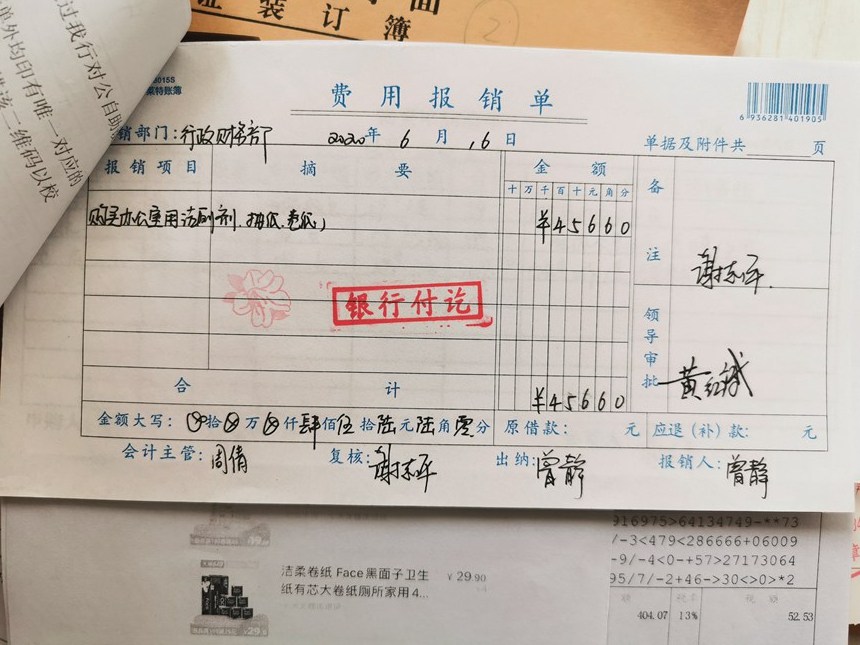 证 装 订 簿
过我行对公自助
章外均印有唯一对应的
二维码以校
费 用 报 销 单
6 936281 401905
销部门:行政财务部 2020年 6 月 16 日 单据及附件共 页
报 销 项 目 摘 要 金 额 备注
十 万 千 百 十 元 角 分
购买办公室用洁厕剂、抽纸、卷纸 ¥45660
谢志平
银行付讫
领导审批 黄红斌
合 计 ¥45660
金额大写: 拾 万 仟肆佰伍拾陆元陆角零分 原借款: 元 应退(补)款: 元
会计主管:周倩 复核:谢志平 出纳:曾静 报销人:曾静
洁柔卷纸 Face黑面子卫生 ¥29.90
纸有芯大卷纸厕所家用4...
916975>64134749-**73
/-3<479<286666+06009
-9/-4<0-+57>27173064
95/7/-2+46->30<>0>*2
404.07 13% 52.53